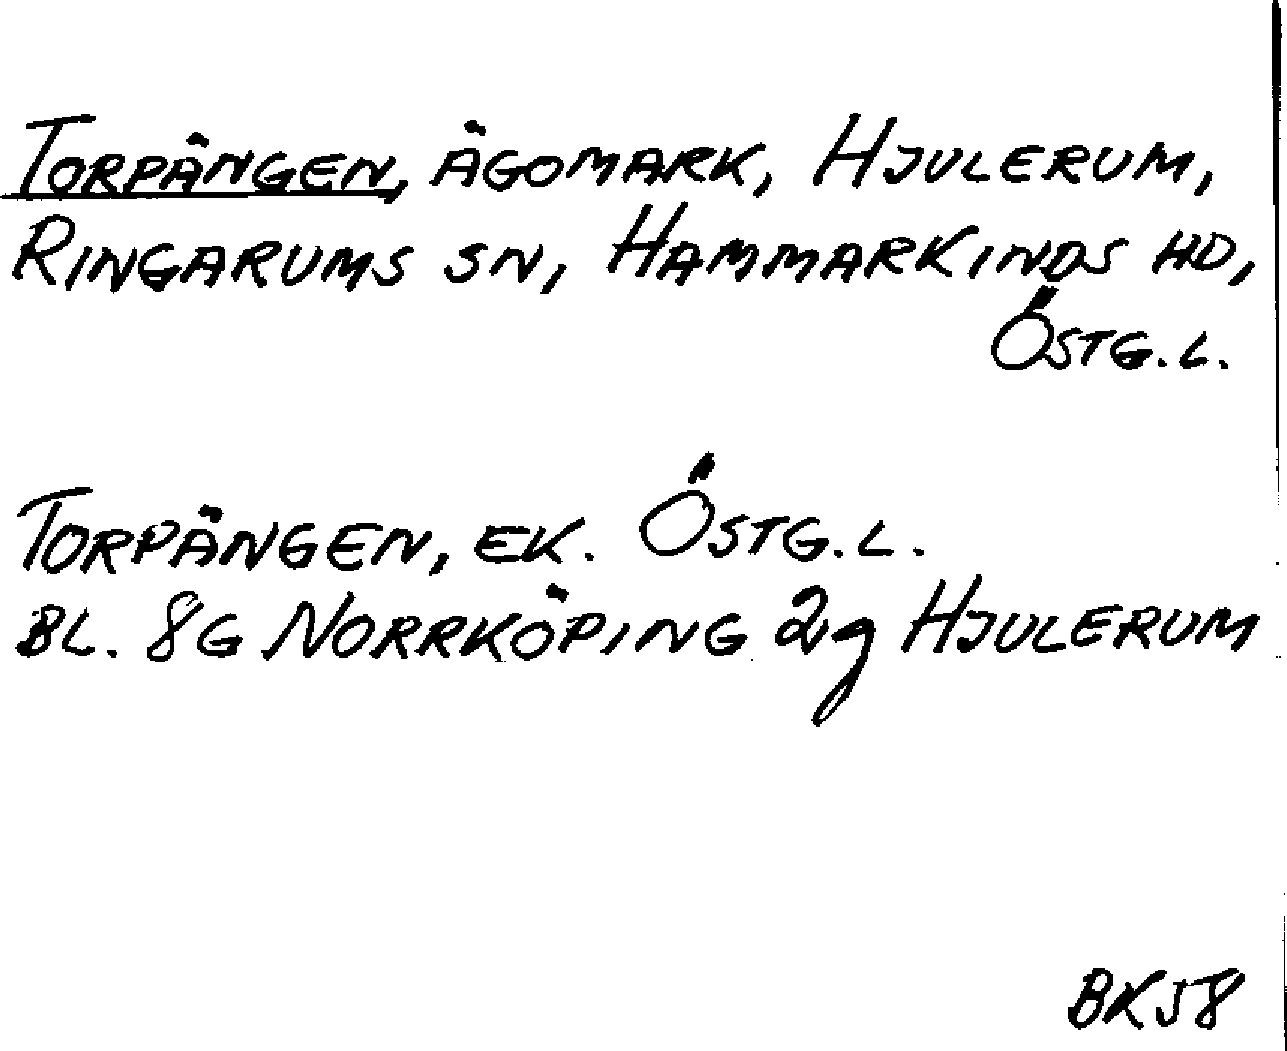 TORPÄNGEN, ÄGOMARK, HJULERUM,
RINGARUMS SN, HAMMARKINDS HD,
ÖSTG.L.
TORPÄNGEN, EK. ÖSTG.L.
BL. 8G NORRKÖPING 2g HJULERUM
BK58